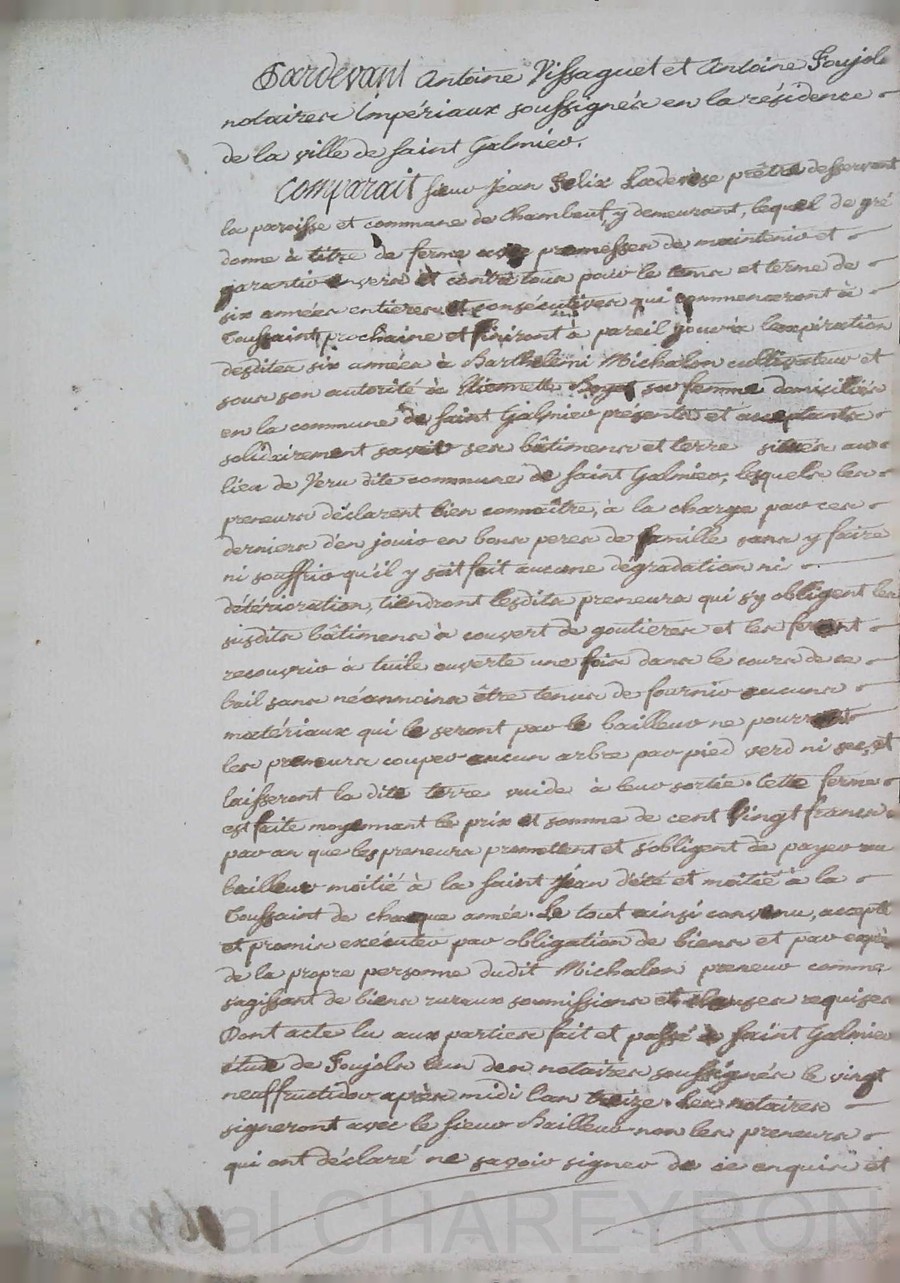 Pardevant Antoine Vissaguet et Antoine Foujols
notaires impériaux soussignés en la résidence
de la ville de saint Galmier.
Comparait sieur jean Felix prêtre desservant
la paroisse et commune de Chambeuf, y demeurant, lequel de gré
donne à titre de ferme avec promesses de maintenir et
garantir envers et contre tous pour le tems et terme de
six années entieres et consécutives qui commenceront à
Toussaint prochaine et finiront à pareil jour à l'expiration
desdites six années à Barthelemi Michalon cultivateur et
sous son autorité à Etiennette sa femme domiciliés
en la commune de saint Galmier présents et acceptants
solidairement savoir ses bâtimens et terre situés au
lieu de Veru dite commune de saint Galmier, lesquels les
preneurs déclarent bien connaître, à la charge par ces
derniers d'en jouir en bons peres de famille sans y faire
ni souffrir qu'il y soit fait aucune dégradation ni
détérioration, tiendront lesdits preneurs qui s'y obligent les
susdits bâtimens à couvert de goutieres et les feront
recouvrir à tuile ouverte une fois dans le cours de ce
bail sans néanmoins être tenus de fournir aucuns
matériaux qui le seront par le bailleur ne pourront
les preneurs couper aucun arbre par pied verd ni sec, et
laisseront la dite terre vuide à leur sortie. Cette ferme
est faite moyennant le prix et somme de cent vingt francs
par an que les preneurs promettent et s'obligent de payer au
bailleur moitié à la saint jean d'été et moitié à la
Toussaint de chaque année. Le tout ainsi convenu, accepté
et promis exécuter par obligation de biens et par exprès
de la propre personne dudit Michalon preneur comme
s'agissant de biens ruraux soumissions et clauses requises
Dont acte lu aux parties fait et passé à saint Galmier
étude de Foujols l'un des notaires soussignés le vingt
neuf fructidor après midi l'an treize. Les notaires
signeront avec le sieur Bailleur non les preneurs
qui ont déclaré ne savoir signer de ce enquis et
Pascal CHAREYRON